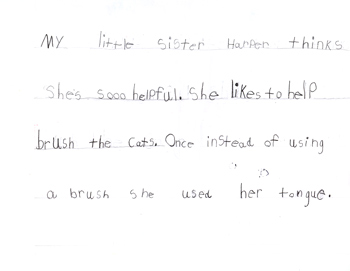 My little sister Harper thinks
She's sooo helpful. She likes to help
brush the cats. Once instead of using
a brush she used her tongue.